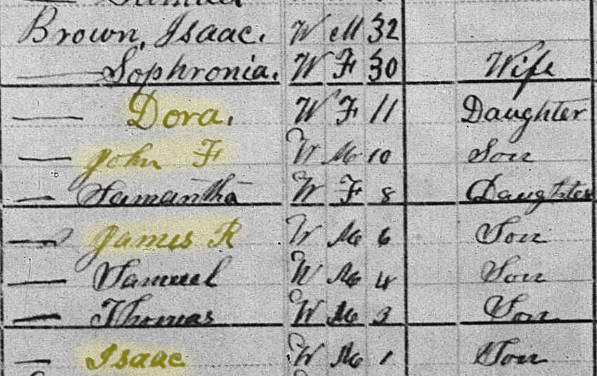 Brown, Isaac. W M 32
— Sophronia. W F 30 Wife
— Dora. W F 11 Daughter
— John F W M 10 Son
— Samantha W F 8 Daughter
— James R W M 6 Son
— Samuel W M 4 Son
— Thomas W M 3 Son
— Isaac W M 1 Son